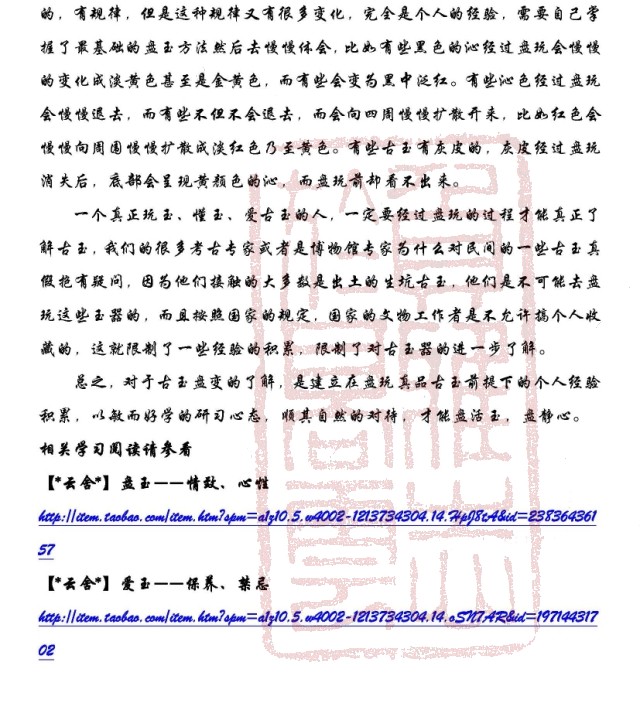 的，有规律，但是这种规律又有很多变化，完全是个人的经验，需要自己掌
握了最基础的盘玉方法然后去慢慢体会，比如有些黑色的沁经过盘玩会慢慢
的变化成淡黄色甚至是金黄色，而有些会变为黑中泛红。有些沁色经过盘玩
会慢慢退去，而有些不但不会退去，而会向四周慢慢扩散开来，比如红色会
慢慢向周围慢慢扩散成淡红色乃至黄色。有些古玉有灰皮的，灰皮经过盘玩
消失后，底部会呈现黄颜色的沁，而盘玩前却看不出来。
一个真正玩玉、懂玉、爱古玉的人，一定要经过盘玩的过程才能真正了
解古玉，我们的很多考古专家或者是博物馆专家为什么对民间的一些古玉真
假抱有疑问，因为他们接触的大多数是出土的生坑古玉，他们是不可能去盘
玩这些玉器的，而且按照国家的规定，国家的文物工作者是不允许搞个人收
藏的，这就限制了一些经验的积累，限制了对古玉器的进一步了解。
总之，对于古玉盘变的了解，是建立在盘玩真品古玉前提下的个人经验
积累，以敏而好学的研习心态，顺其自然的对待，才能盘活玉，盘静心。
相关学习阅读请参看
【*云舍*】盘玉——情致、心性
http://item.taobao.com/item.htm?spm=a1z10.5.w4002-1213734304.14.HpJ8tA&id=238364361
57
【*云舍*】爱玉——保养、禁忌
http://item.taobao.com/item.htm?spm=a1z10.5.w4002-1213734304.14.oSN7AR&id=197144317
02